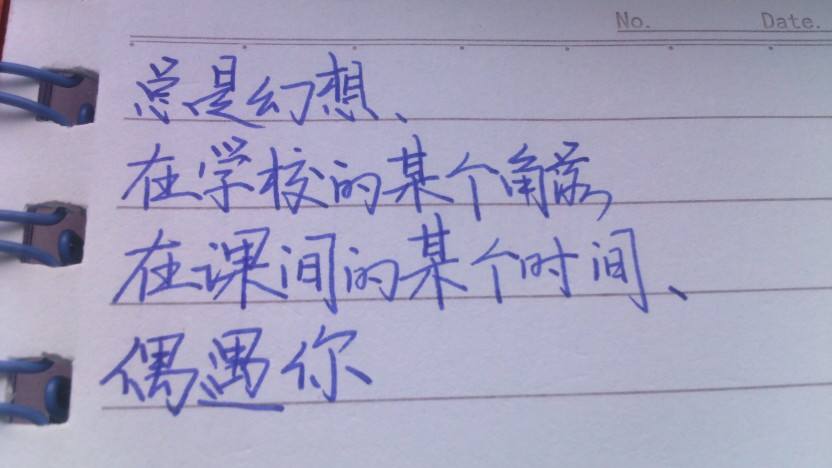 No. Date.
总是幻想、
在学校的某个角落,
在课间的某个时间、
偶遇你